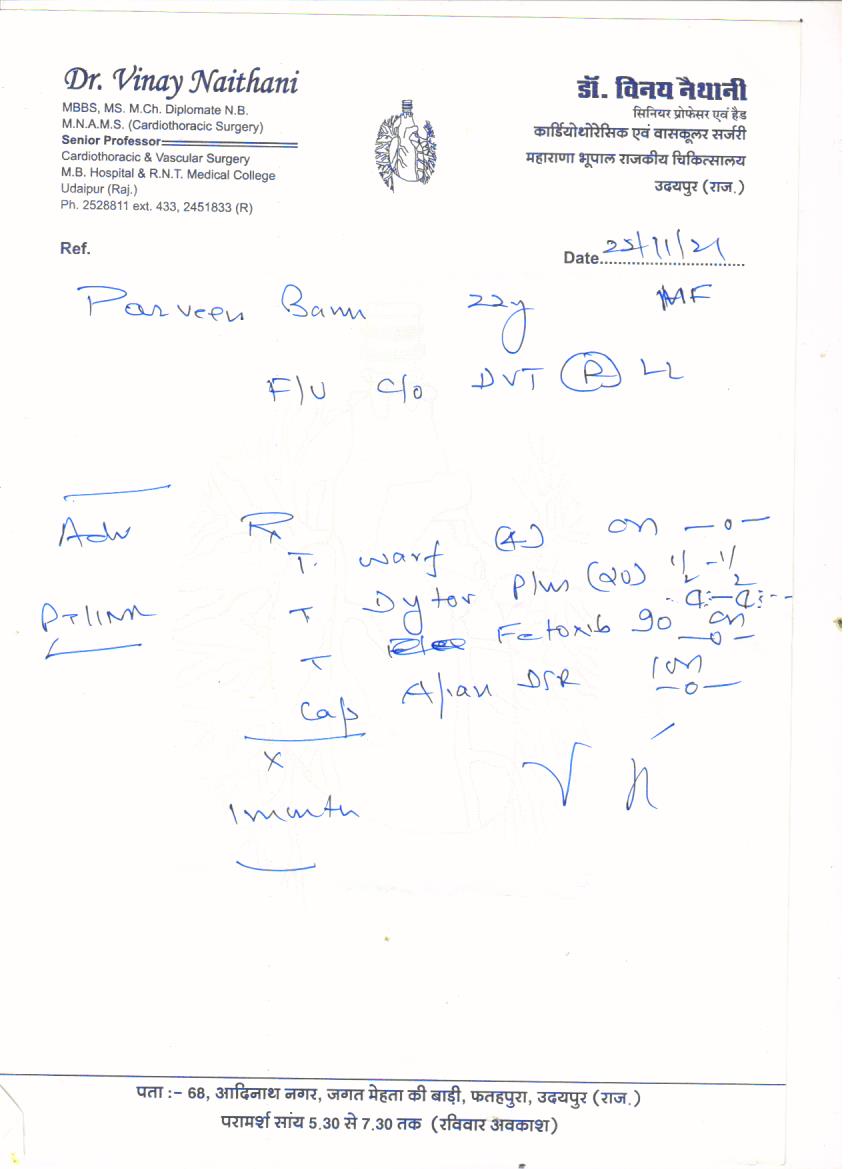 Dr. Vinay Naithani
MBBS, MS. M.Ch. Diplomate N.B.
M.N.A.M.S. (Cardiothoracic Surgery)
Senior Professor
Cardiothoracic & Vascular Surgery
M.B. Hospital & R.N.T. Medical College
Udaipur (Raj.)
Ph. 2528811 ext. 433, 2451833 (R)
डॉ. विनय नैथानी
सिनियर प्रोफेसर एवं हैड
कार्डियोथोरेसिक एवं वासकूलर सर्जरी
महाराणा भूपाल राजकीय चिकित्सालय
उदयपुर (राज.)
Ref.
Date 25/11/21
Parveen Banu 22y F
F/U C/o DVT (R) LL
Adv Rx
T. Warf (4) on —o—
PT/INR T Dytor Plus (20) 1/2 - 1/2
T Fetoxib 90 on —o—
Cap DSR 1on —o—
x
1 month
पता :– 68, आदिनाथ नगर, जगत मेहता की बाड़ी, फतहपुरा, उदयपुर (राज.)
परामर्श सांय 5.30 से 7.30 तक (रविवार अवकाश)